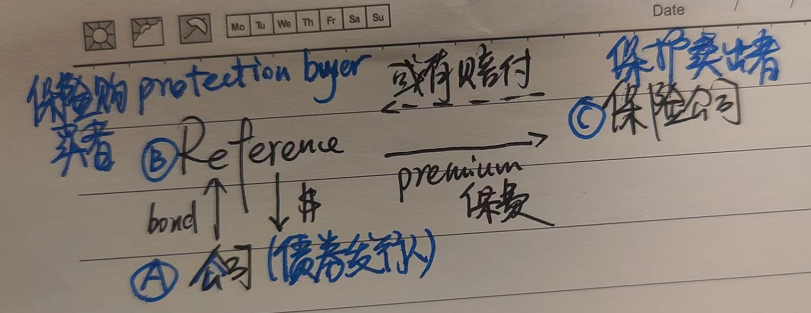 Mo Tu We Th Fr Sa Su
Date / /
保险购 protection buyer
买者
或有赔付
保护卖出者
Ⓑ Reference
Ⓒ 保险公司
premium
保费
bond
$
Ⓐ 公司 (债券发行人)